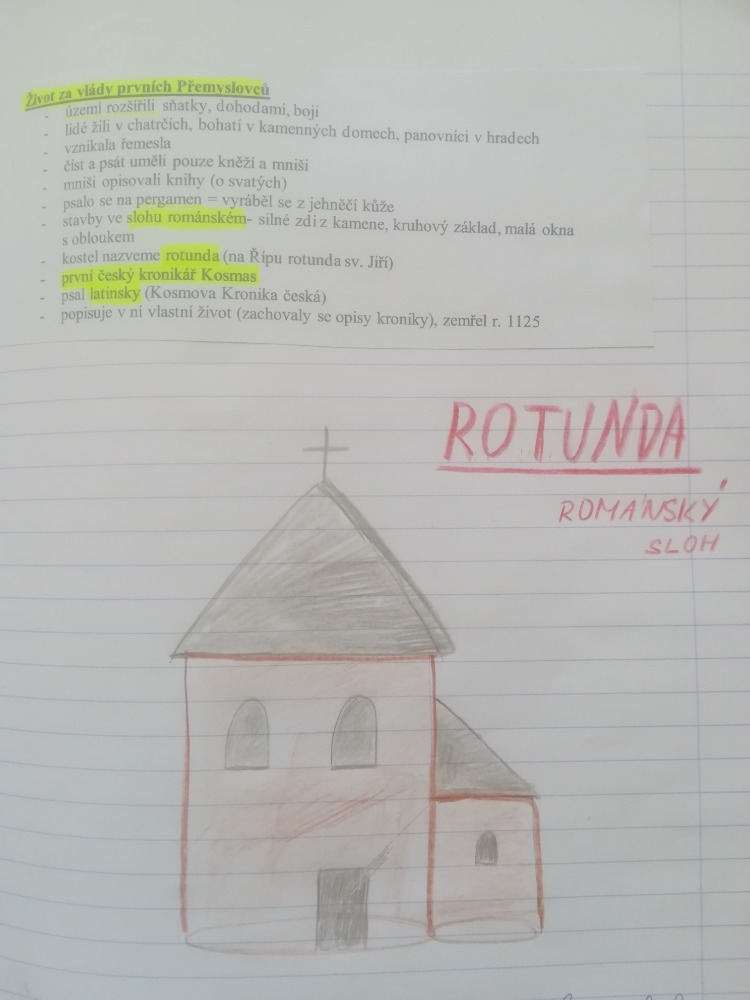 Život za vlády prvních Přemyslovců
- území rozšířili sňatky, dohodami, boji
- lidé žili v chatrčích, bohatí v kamenných domech, panovníci v hradech
- vznikala řemesla
- číst a psát uměli pouze kněží a mniši
- mniši opisovali knihy (o svatých)
- psalo se na pergamen = vyráběl se z jehněčí kůže
- stavby ve slohu románském- silné zdi z kamene, kruhový základ, malá okna
s obloukem
- kostel nazveme rotunda (na Řípu rotunda sv. Jiří)
- první český kronikář Kosmas
- psal latinsky (Kosmova Kronika česká)
- popisuje v ní vlastní život (zachovaly se opisy kroniky), zemřel r. 1125
ROTUNDA
ROMÁNSKÝ
SLOH